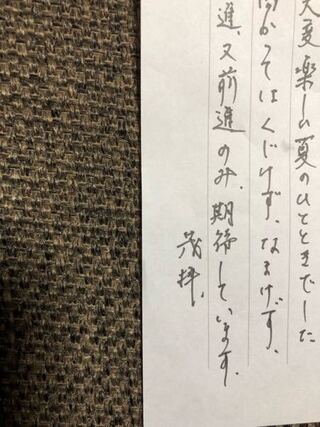 大変楽しい夏のひとときでした
向かってはくじけず、なまけず、
進、又前進のみ、期待しています。
拝、